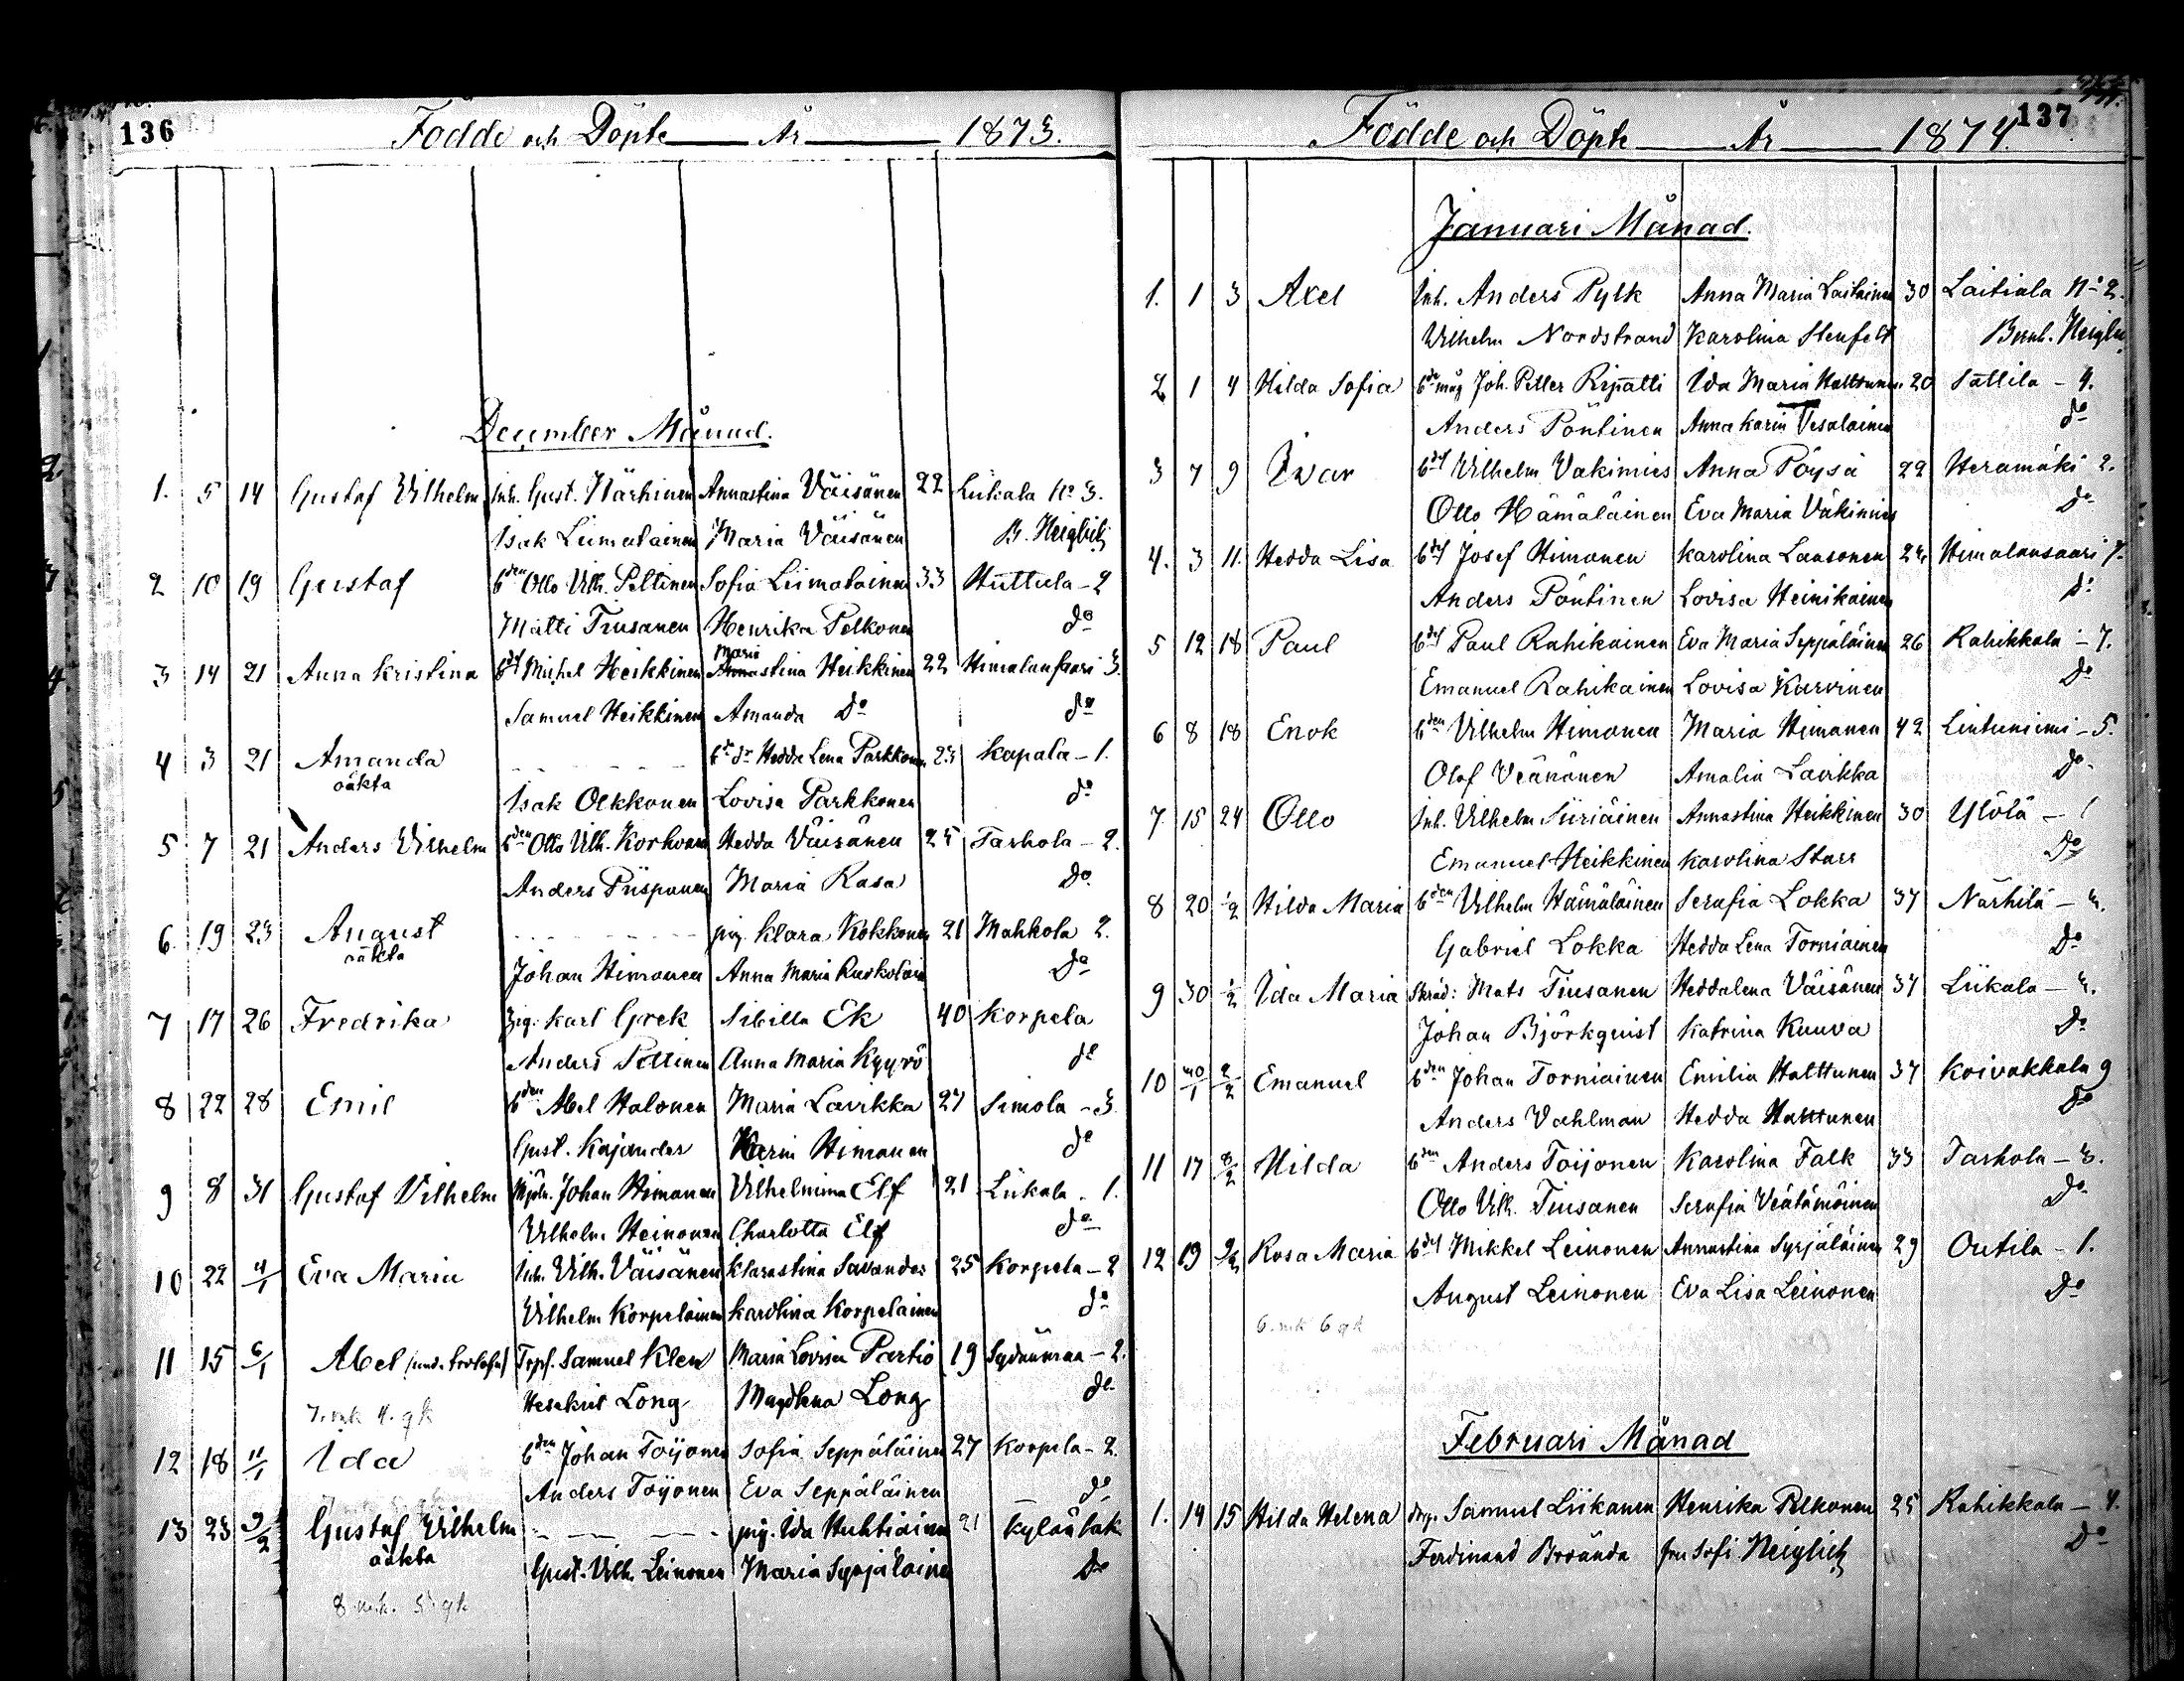 136
Födde och Döpte År 1873.
December Månad.
1. 5 14 Gustaf Vilhelm Inh. Gust. Närhinen Annastina Väisänen 22 Liikala No 3.
Isak Liimatainen Maria Väisänen B. Heiglich
2 10 19 Gustaf bden Otto Vilh. Peltinen Sofia Liimatainen 33 Huttula - 2
Matti Tiusanen Henrika Pelkonen do
3 14 21 Anna Kristina bdsn Michel Heikkinen Maria Annastina Heikkinen 22 Himalansaari 3.
Samuel Heikkinen Amanda Do do
4 3 21 Amanda bde dr Hedda Lena Parkkonen 23 Kapala - 1.
oäkta
Isak Olkkonen Lovisa Parkkonen do
5 7 21 Anders Vilhelm bden Otto Vilh. Korhonen Hedda Väisänen 25 Tarhola - 2.
Anders Piispanen Maria Rasa do
6. 19 23 August pig. Klara Kokkonen 21 Mahkola 2.
oäkta
Johan Himanen Anna Maria Ruokolain Do
7 17 26 Fredrika Zig. Karl Grek Sibilla Ek 40 Korpela
Anders Peltinen Anna Maria Kyyrö do
8 22 28 Emil bden Abel Halonen Maria Lavikka 27 Simola - 3
Gust. Kajander Karin Himanen do
9 8 31 Gustaf Vilhelm Mjöln. Johan Himanen Vilhelmina Elf 21 Liikala - 1.
Vilhelm Heinonen Charlotta Elf do
10 22 4/1 Eva Maria Inh. Vilh. Väisänen Klarastina Savander 25 Korpela - 2
Vilhelm Korpelainen Karolina Korpelainen do
11 15 6/1 Abel Torp. Samuel Klen Maria Lovisa Partio 19 Sydänmaa - 2.
Hesekiel Long Magdlena Long do
7. mk 4. qk
12 18 11/1 Ida bden Johan Toijonen Sofia Seppäläinen 27 Korpela - 2.
Anders Toijonen Eva Seppäläinen do
13 23 9/2 Gustaf Vilhelm pig. Ida Huhtiainen 21 Kylänlak
oäkta
Gust. Vilh. Leinonen Maria Syrjäläinen Do
8 mk. 5 qk
137
Födde och Döpte År 1874.
Januari Månad.
1. 1 3 Axel Inh. Anders Pylk Anna Maria Laitainen 30 Laitiala No 2.
Vilhelm Nordstrand Karolina Stenfelt Bernh. Heiglich
2 1 4 Hilda Sofia bde måg Joh. Petter Ripatti Ida Maria Halttunen 20 Sattila - 4.
Anders Pöntinen Anna Karin Vesalainen do
3 7 9 Ivar bdsn Vilhelm Vakimies Anna Pöysä 22 Heramäki 2.
Otto Hämäläinen Eva Maria Väkimies Do
4. 3 11. Hedda Lisa bdsn Josef Himanen Karolina Laasonen 24 Himalansaari 7.
Anders Pöntinen Lovisa Heinikainen do
5 12 18 Paul bdsn Paul Rahikainen Eva Maria Seppäläinen 26 Rahikkala - 7.
Emanuel Rahikainen Lovisa Karvinen Do
6 8 18 Enok bden Vilhelm Himanen Maria Himanen 42 Lintuniemi - 5.
Olof Veänänen Amalia Lavikka Do
7. 15 24 Otto Inh. Vilhelm Siiriäinen Annastina Heikkinen 30 Ylötä - 1
Emanuel Heikkinen Karolina Starr Do
8 20 1/2 Hilda Maria bden Vilhelm Hämäläinen Serafia Lokka 37 Närhilä - 3.
Gabriel Lokka Hedda Lena Torniainen Do
9 30 1/2 Ida Maria Skräd: Mats Tiusanen Heddalena Väisänen 37 Liikala - 3.
Johan Björkquist Katrina Kauva Do
10 30/1 2/2 Emanuel bden Johan Torniainen Emilia Halttunen 37 Koivakkala 9
Anders Vahlman Hedda Halttunen Do
11 17 8/2 Hilda bden Anders Toijonen Karolina Falk 33 Tarhola - 3.
Otto Vilh. Tiusanen Serafia Veätämöinen Do
12 19 9/2 Rosa Maria bdsn Mikkel Leinonen Annastina Syrjäläinen 29 Outila - 1.
August Leinonen Eva Lisa Leinonen Do
6. mk 6 qk
Februari Månad
1. 14 15 Hilda Helena drg. Samuel Liikanen Henrika Pelkonen 25 Rahikkala - 4.
Ferdinand Broända fru Sofi Heiglich Do